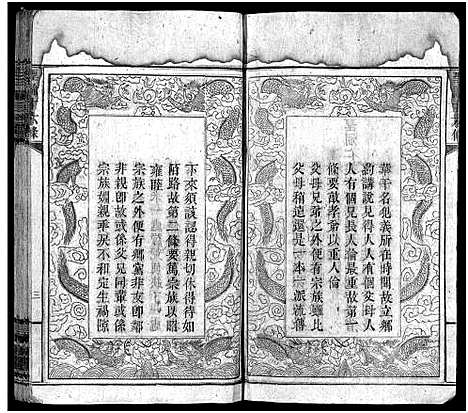 華干名犯義所在時聞故立鄉
約講說見得人人有個父母人
人有個兄長人倫最重故第一
條要敦孝弟以重人倫
父母兄弟之外便有宗族雖比
父母稍遠還是一本一派流傳
下來須該認得親切休得待如
陌路故第二條要篤宗族以昭
雍睦
宗族之外便有鄉黨非友卽鄰
非親卽故或係父兄同輩或係
宗族姻親乖戾不和定生禍隙
三